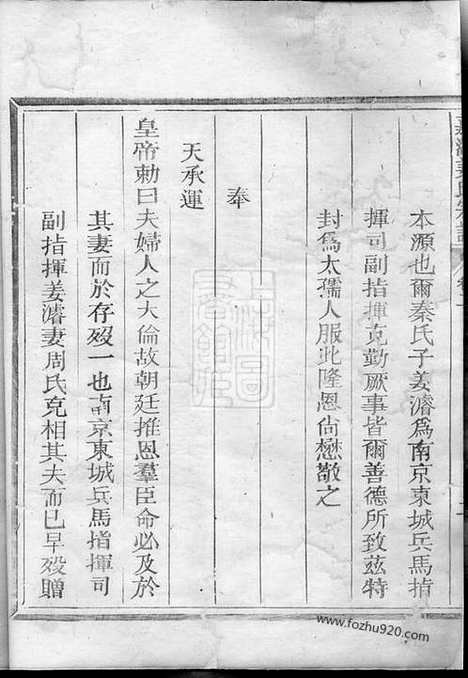 本源也爾秦氏子姜濬爲南京東城兵馬指
揮司副指揮克勤厥事皆爾善德所致茲特
封爲太孺人服此隆恩尙懋敬之
奉
天承運
皇帝勅曰夫婦人之大倫故朝廷推恩羣臣命必及於
其妻而於存歿一也南京東城兵馬指揮司
副指揮姜濬妻周氏克相其夫而已早歿贈
www.fozhu920.com